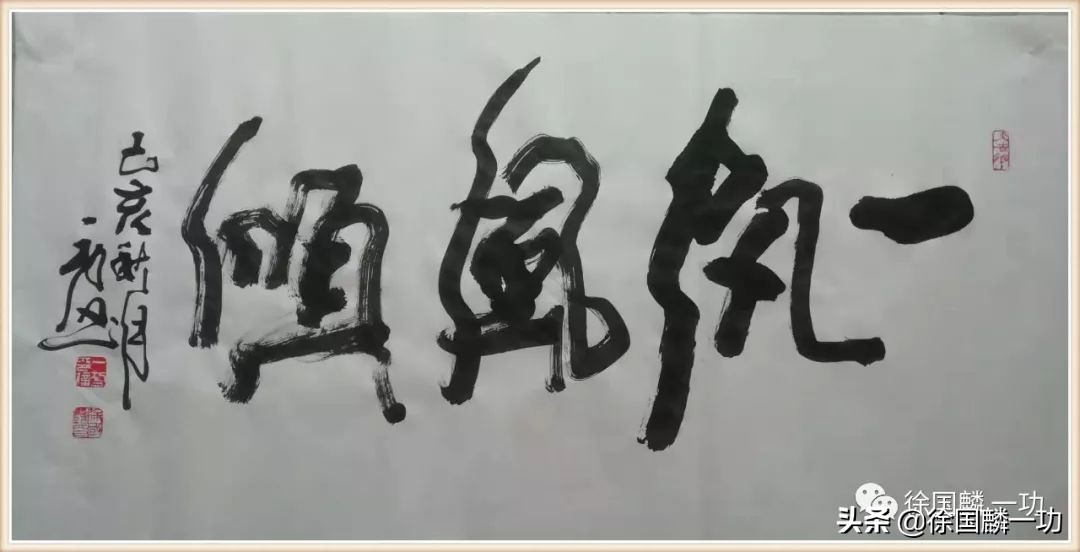 一帆風順
己亥秋月
一功
徐国麟一功
头条 @徐国麟一功